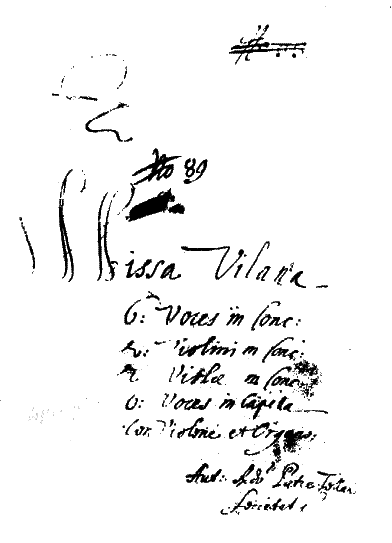 No 89
Missa Vilana
6: Voces in Conc:
2: Violini in Conc:
2 Violae in Conc:
6: Voces in Capella
Con Violone et Organo:
Aut: Rdo Patre
Societatis